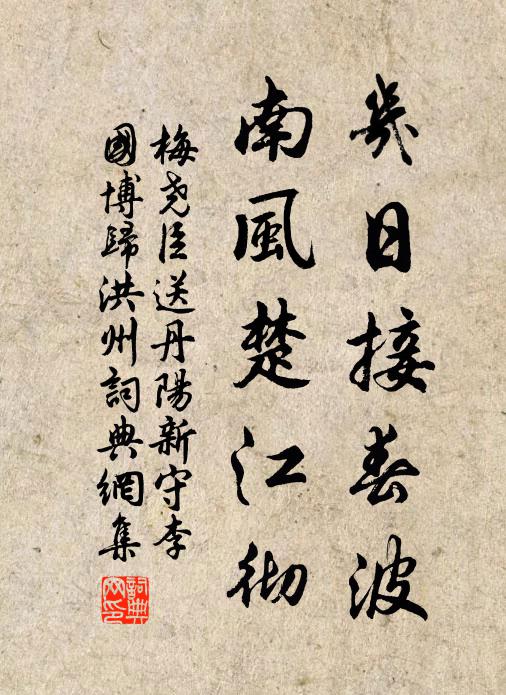 幾日接春波
南風楚江彻
梅尭臣送丹陽新守李
國博歸洪州詞典網集
詞典網印